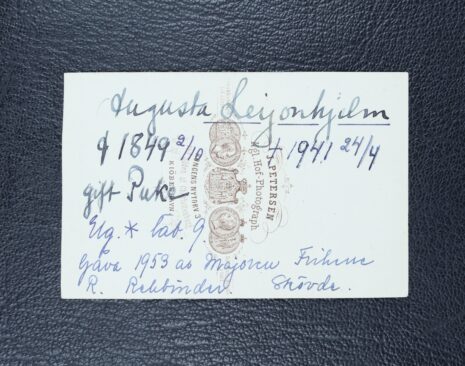 Augusta Leijonhjelm
f 1849 2/10 † 1941 24/4
gift Puke
Elg. * tab. 9
Gåva 1953 av Majoren Friherre
R. Rehbinder. Skövde.
J. PETERSEN
Kgl. Hof-Photograph
KJØBENHAVN